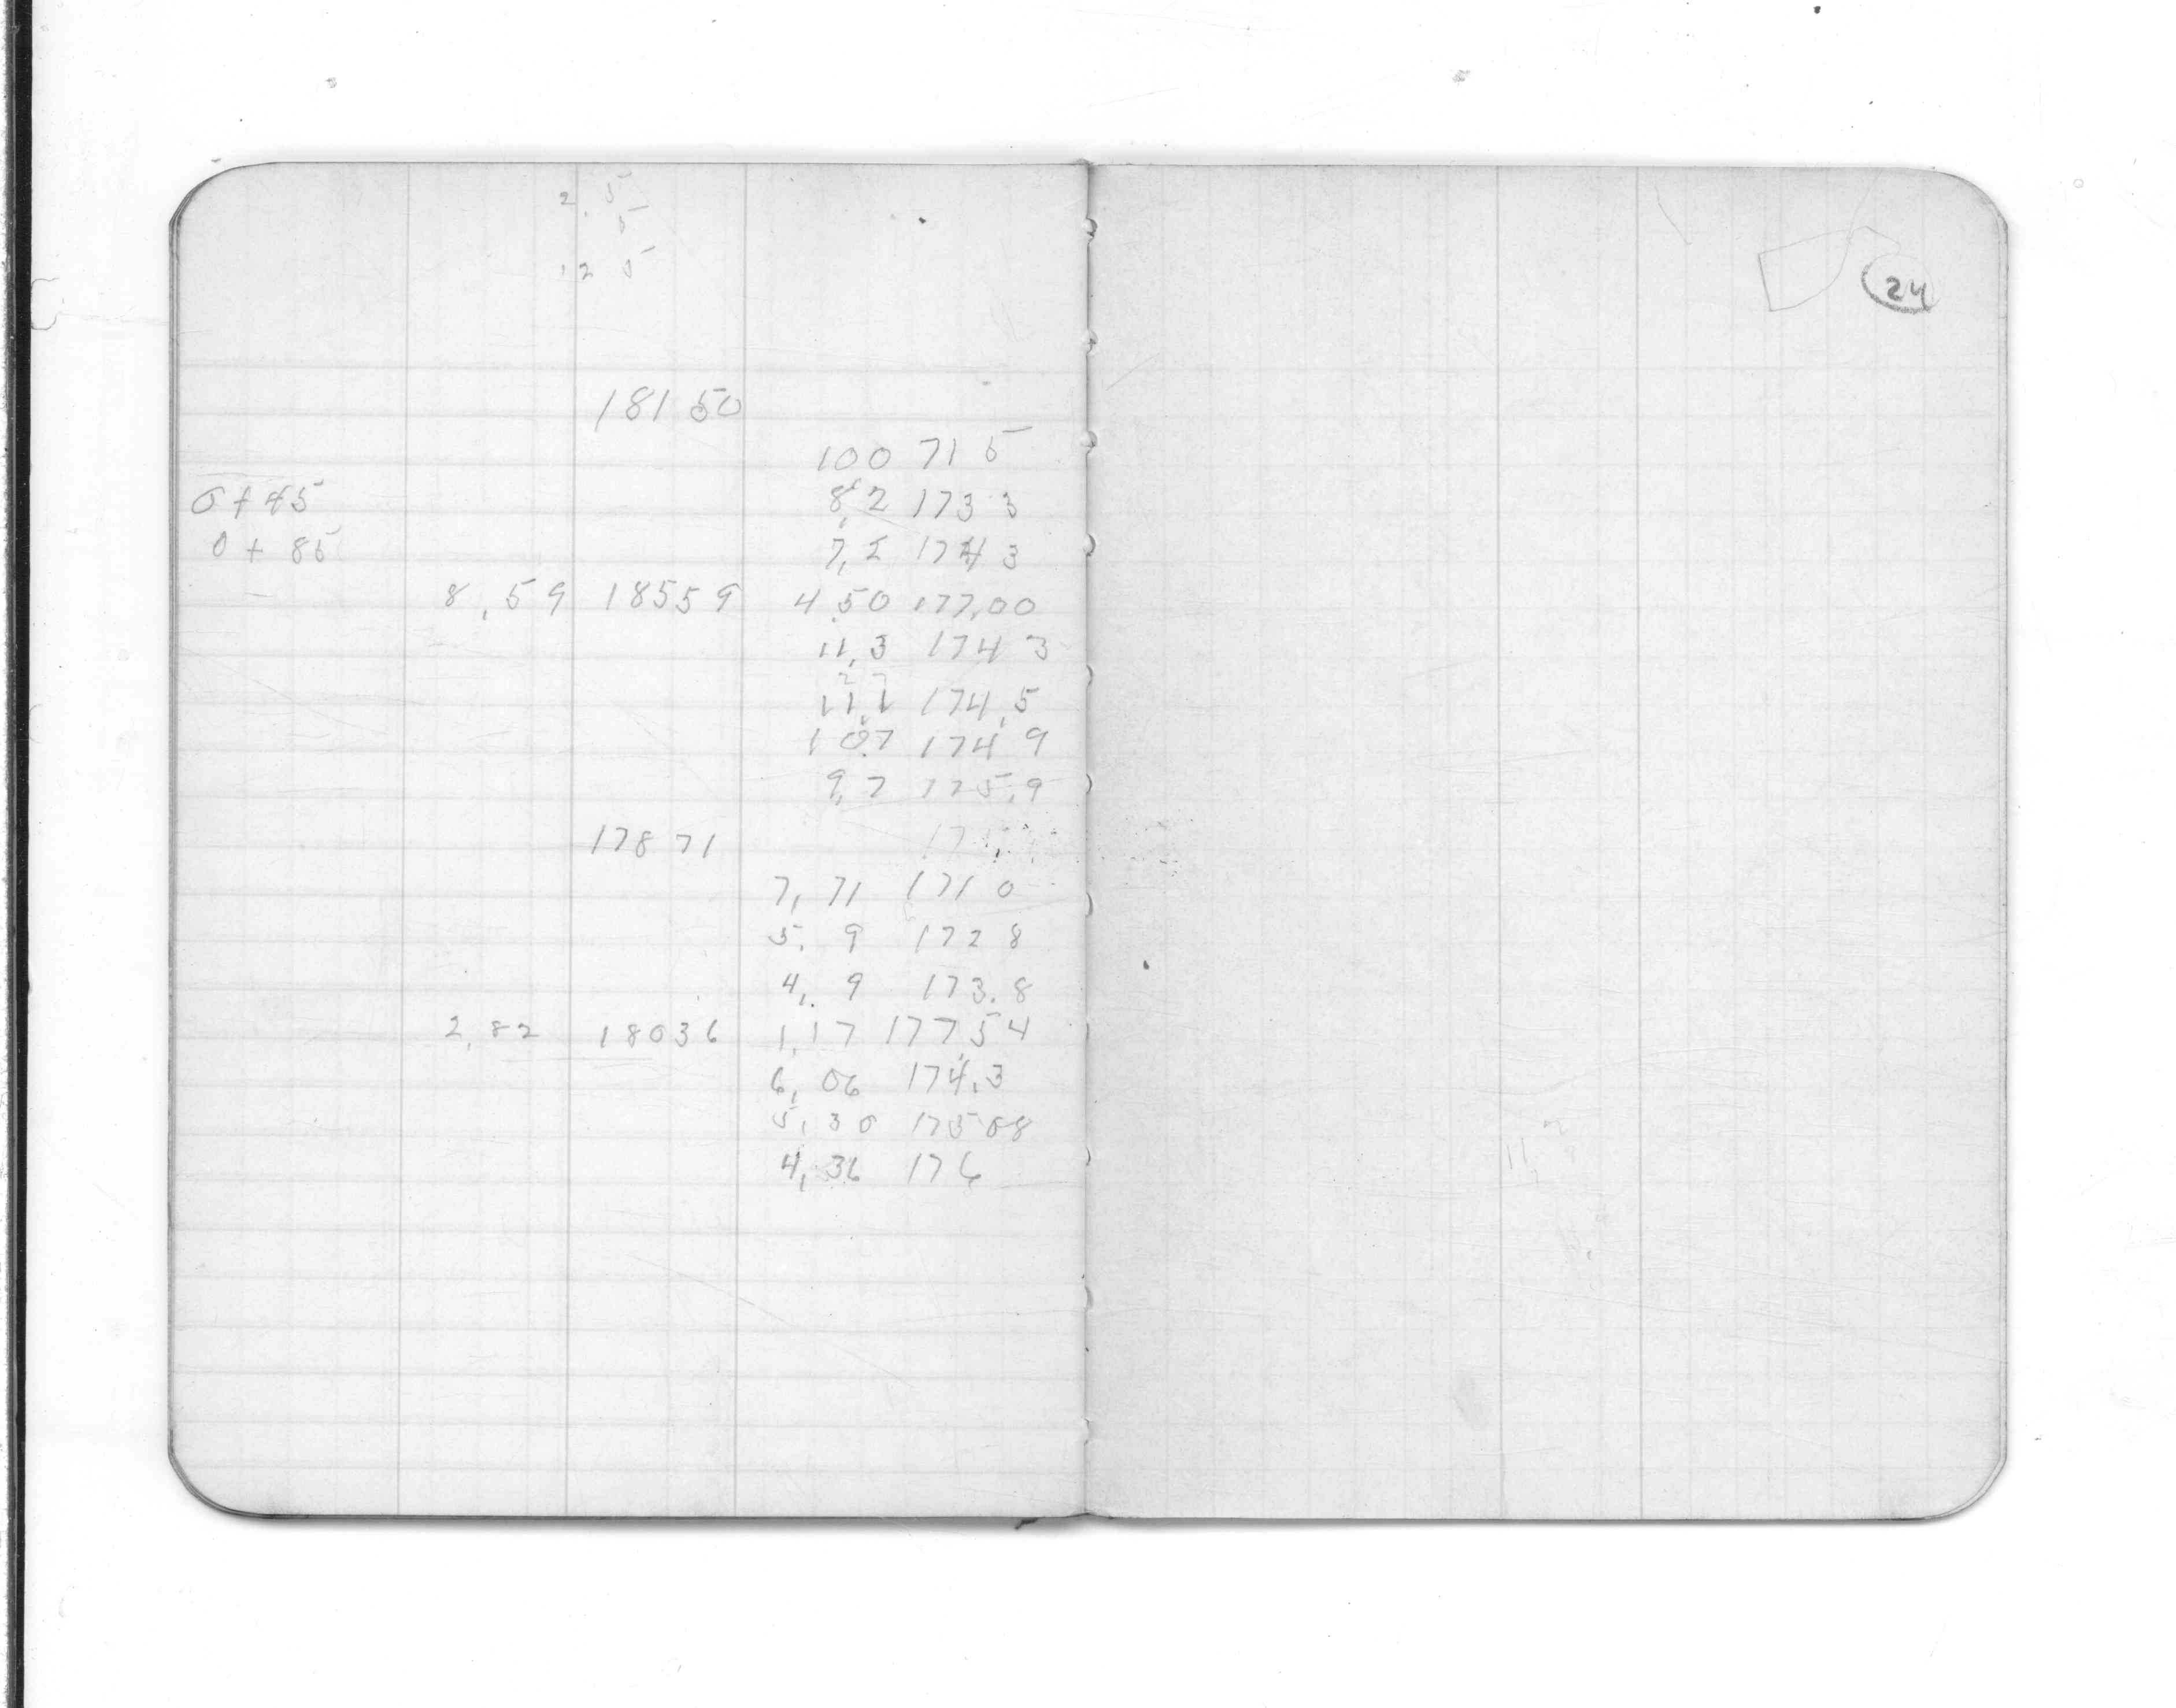 2.5
5
12 5
24
181 50
100 71 5
0+45 8,2 173 3
0+85 7,2 174 3
8,59 185 59 4,50 177,00
11,3 174 3
11,1 174,5
10,7 174 9
9,7 175,9
178 71
7,71 171 0
5,9 172 8
4,9 173.8
2,82 180 36 1,17 177,54
6,06 174,3
5,30 175 08
4,36 176